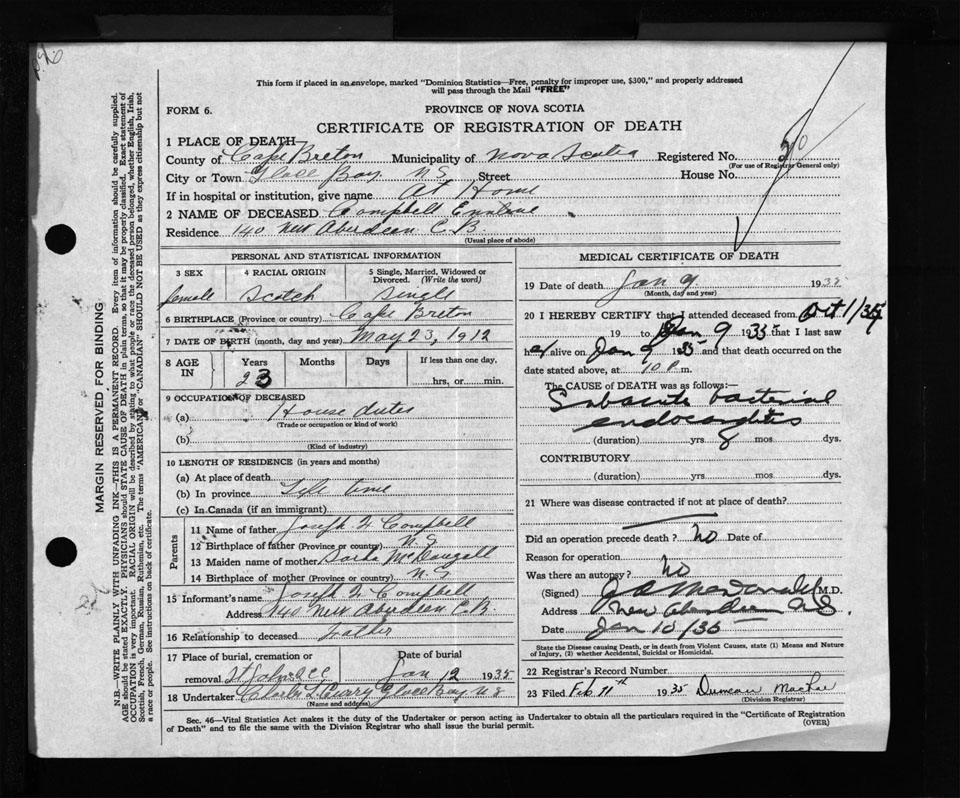 This form if placed in an envelope, marked "Dominion Statistics—Free, penalty for improper use, $300," and properly addressed
will pass through the Mail "FREE"
FORM 6.
PROVINCE OF NOVA SCOTIA
CERTIFICATE OF REGISTRATION OF DEATH
1 PLACE OF DEATH
County of Cape Breton Municipality of Nova Scotia Registered No.
(For use of Registrar General only)
City or Town Glace Bay N S Street House No.
If in hospital or institution, give name At Home
2 NAME OF DECEASED Campbell
Residence 140 New Aberdeen C.B.
(Usual place of abode)
PERSONAL AND STATISTICAL INFORMATION
3 SEX 4 RACIAL ORIGIN 5 Single, Married, Widowed or Divorced. (Write the word)
female Scotch Single
6 BIRTHPLACE (Province or country) Cape Breton
7 DATE OF BIRTH (month, day and year) May 23, 1912
8 AGE IN Years Months Days If less than one day,
23 hrs, or min.
9 OCCUPATION OF DECEASED
(a) House duties
(Trade or occupation or kind of work)
(b)
(Kind of industry)
10 LENGTH OF RESIDENCE (in years and months)
(a) At place of death
(b) In province Life time
(c) In Canada (if an immigrant)
Parents
11 Name of father Joseph Campbell
12 Birthplace of father (Province or country) N.S
13 Maiden name of mother McDougall
14 Birthplace of mother (Province or country) N.S
15 Informant's name Joseph Campbell
Address 140 New Aberdeen C.B.
16 Relationship to deceased Father
17 Place of burial, cremation or removal Date of burial
Jan 12 1935
18 Undertaker Glace Bay N S
(Name and address)
MEDICAL CERTIFICATE OF DEATH
19 Date of death Jan 9 1935
(Month, day and year)
20 I HEREBY CERTIFY that I attended deceased from Oct 1/35
19 to Jan 9 1935 that I last saw
her alive on Jan 9 1935 and that death occurred on the
date stated above, at 10 P.m.
The CAUSE OF DEATH was as follows:—
Subacute bacterial
endocarditis
(duration) yrs 8 mos dys.
CONTRIBUTORY
(duration) yrs mos dys.
21 Where was disease contracted if not at place of death?
Did an operation precede death? No Date of
Reason for operation
Was there an autopsy? No
(Signed) M.D.
Address New Aberdeen N.S.
Date Jan 10/35
State the Disease causing Death, or in death from Violent Causes, state (1) Means and Nature
of Injury, (2) whether Accidental, Suicidal or Homicidal.
22 Registrar's Record Number
23 Filed Feb. 11th 1935 Duncan
(Division Registrar)
Sec. 46—Vital Statistics Act makes it the duty of the Undertaker or person acting as Undertaker to obtain all the particulars required in the "Certificate of Registration
of Death" and to file the same with the Division Registrar who shall issue the burial permit.
(OVER)
MARGIN RESERVED FOR BINDING
N.B.—WRITE PLAINLY WITH UNFADING INK—THIS IS A PERMANENT RECORD. Every item of information should be carefully supplied.
AGE should be stated EXACTLY. PHYSICIANS should STATE CAUSE OF DEATH in plain terms, so that it may be properly classified. Exact statement of
OCCUPATION is very important. RACIAL ORIGIN will be described by stating to what people or race the deceased person belonged, whether English, Irish,
Scottish, French, German, Russian, Ruthenian, etc. The terms "AMERICAN" or "CANADIAN" SHOULD NOT BE USED as they express citizenship but not
a race or people. See instructions on back of certificate.